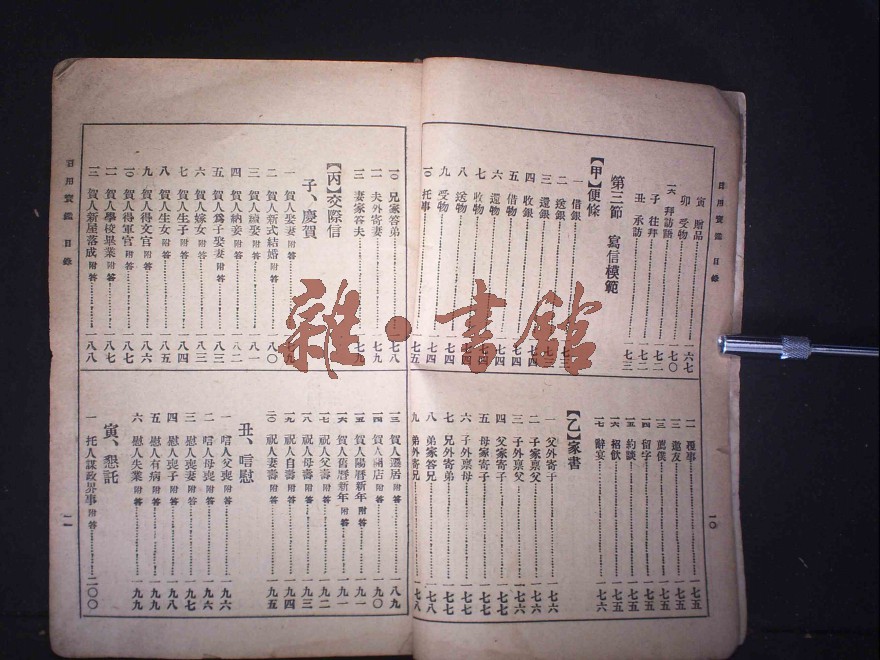 日用寶鑑 目錄
寅 贈品 一六七
卯 受物
一六 拜訪語 一七〇
子 往拜 一七二
丑 承訪 一七三
第三節 寫信模範
【甲】便條
一 借銀
二 送銀 一七三
三 還銀
四 收銀 一七四
五 借物 一七四
六 還物 一七四
七 收物 一七四
八 送物 一七四
九 受物 一七四
一〇 托事 一七五
一一 種事 一七五
一二 邀友 一七五
一三 薦僕 一七五
一四 留字 一七五
一五 約談 一七五
一六 招飲 一七五
一七 辭宴 一七六
【乙】家書
一 父外寄子 一七六
二 子家稟父 一七六
三 子外稟父 一七六
四 父家寄子 一七七
五 母家寄子 一七七
六 子外稟母 一七七
七 兄外寄弟 一七七
八 弟家答兄 一七八
九 弟外寄兄 一七八
一〇
日用寶鑑 目錄
一〇 兄家答弟 一七八
一一 夫外寄妻 一七九
一二 妻家答夫 一七九
【丙】交際信
子、慶賀
一 賀人娶妻 附答
二 賀人新式結婚 附答 一八〇
三 賀人續娶 附答 一八一
四 賀人納妾 附答 一八二
五 賀人爲子娶妻 附答 一八三
六 賀人嫁女 附答 一八三
七 賀人生子 附答 一八四
八 賀人生女 附答 一八五
九 賀人得文官 附答 一八六
一〇 賀人得軍官 附答 一八七
一一 賀人學校畢業 附答 一八七
一二 賀人新屋落成 附答 一八八
一三 賀人遷居 附答 一八九
一四 賀人開店 附答 一九〇
一五 賀人陽曆新年 附答 一九一
一六 賀人舊曆新年 附答 一九一
一七 祝人父壽 附答 一九二
一八 祝人母壽 附答 一九三
一九 祝人自壽 附答 一九四
二〇 祝人妻壽 附答 一九五
丑、唁慰
一 唁人父喪 附答 一九六
二 唁人母喪 附答 一九六
三 慰人喪妻 附答 一九七
四 慰人喪子 附答 一九八
五 慰人有病 附答 一九九
六 慰人失業 附答 一九九
寅、懇託
一 托人謀政界事 附答 二〇〇
一一
雜·書館